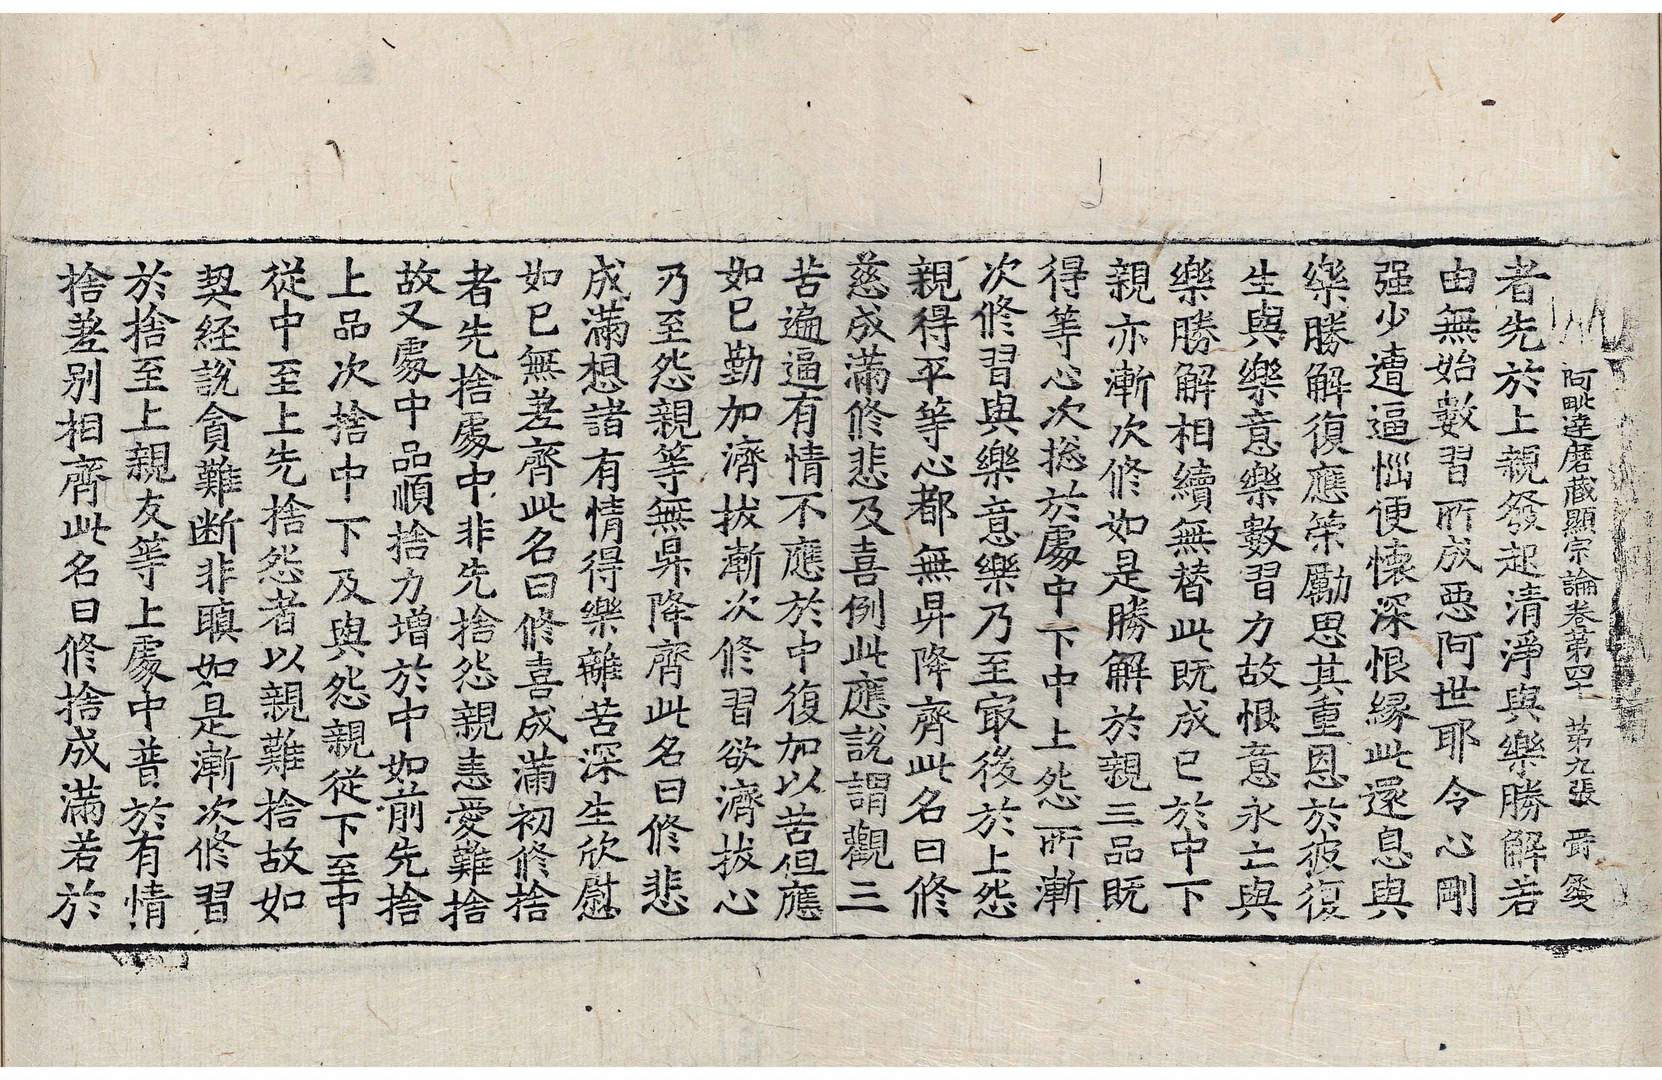 阿毗達磨藏顯宗論卷第四十 第九張 爵
者先於上親發起清淨與樂勝解若
由無始數習所成惡阿世耶令心剛
强少遭逼惱便懷深恨緣此還息與
樂勝解復應策勵思其重恩於彼復
生與樂意樂數習力故恨意永亡與
樂勝解相續無替此既成已於中下
親亦漸次修如是勝解於親三品既
得等心次捴於處中下中上怨所漸
次修習與樂意樂乃至冣後於上怨
親得平等心都無昇降齊此名曰修
慈成滿修悲及喜例此應說謂觀三
苦遍逼有情不應於中復加以苦但應
如已勤加濟拔漸次修習欲濟拔心
乃至怨親等無昇降齊此名曰修悲
成滿想諸有情得樂離苦深生欣慰
如已無差齊此名曰修喜成滿初修捨
者先捨處中非先捨怨親恚愛難捨
故又處中品順捨力增於中如前先捨
上品次捨中下及與怨親從下至中
從中至上先捨怨者以親難捨故如
契經說貪難断非瞋如是漸次修習
於捨至上親友等上處中普於有情
捨差别相齊此名曰修捨成滿若於